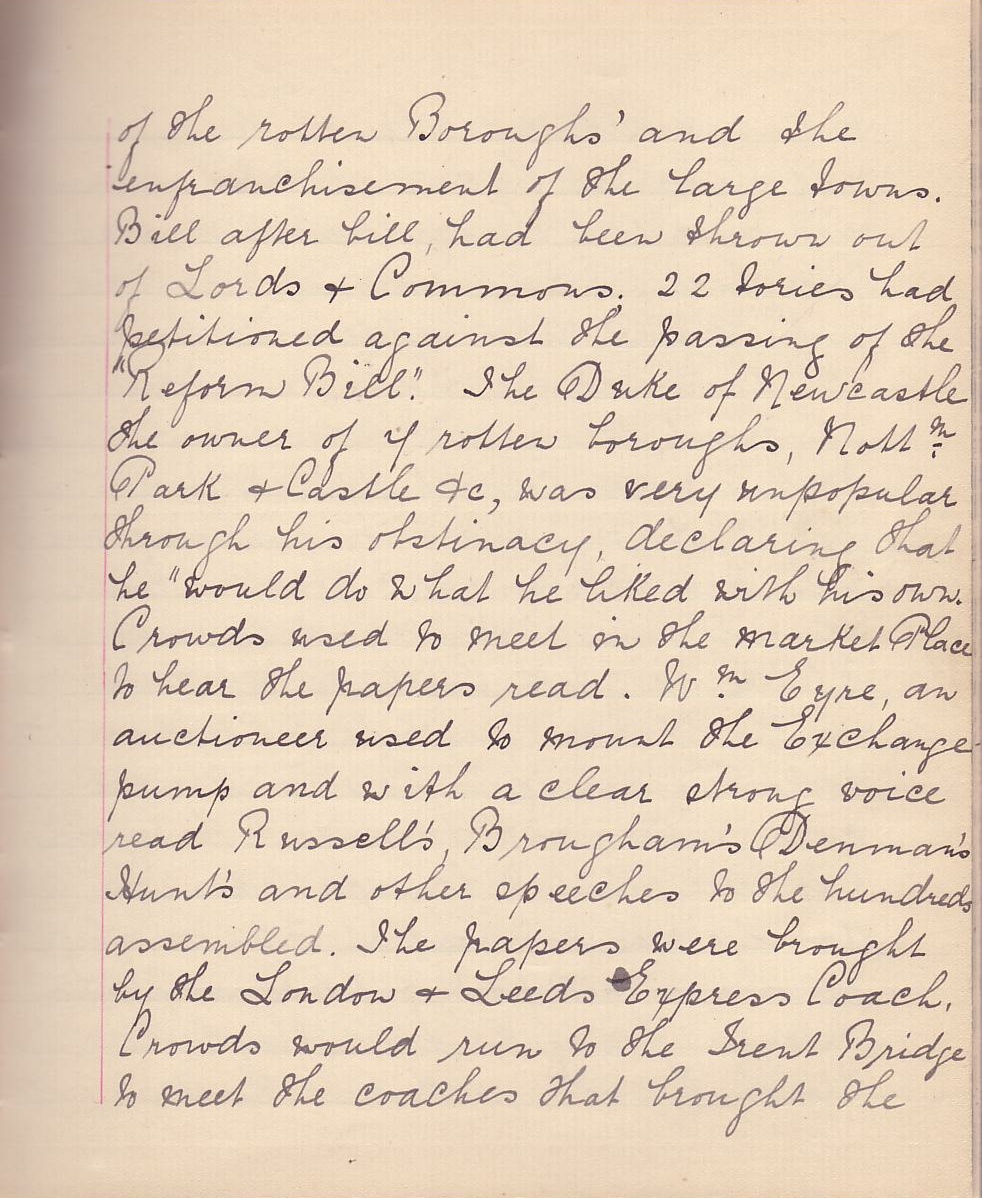 of the rotten Boroughs' and the
enfranchisement of the large towns.
Bill after bill, had been thrown out
of Lords & Commons. 22 tories had
petitioned against the passing of the
"Reform Bill". The Duke of Newcastle
the owner of 7 rotten boroughs, Nottm
Park & Castle &c, was very unpopular
through his obstinacy, declaring that
he "would do what he liked with his own.
Crowds used to meet in the market Place
to hear the papers read. Wm Eyre, an
auctioneer used to mount the Exchange
pump and with a clear strong voice
read Russell's, Brougham's Denman's
Hunt's and other speeches to the hundreds
assembled. The papers were brought
by the London & Leeds Express Coach,
Crowds would run to the Trent Bridge
to meet the coaches that brought the